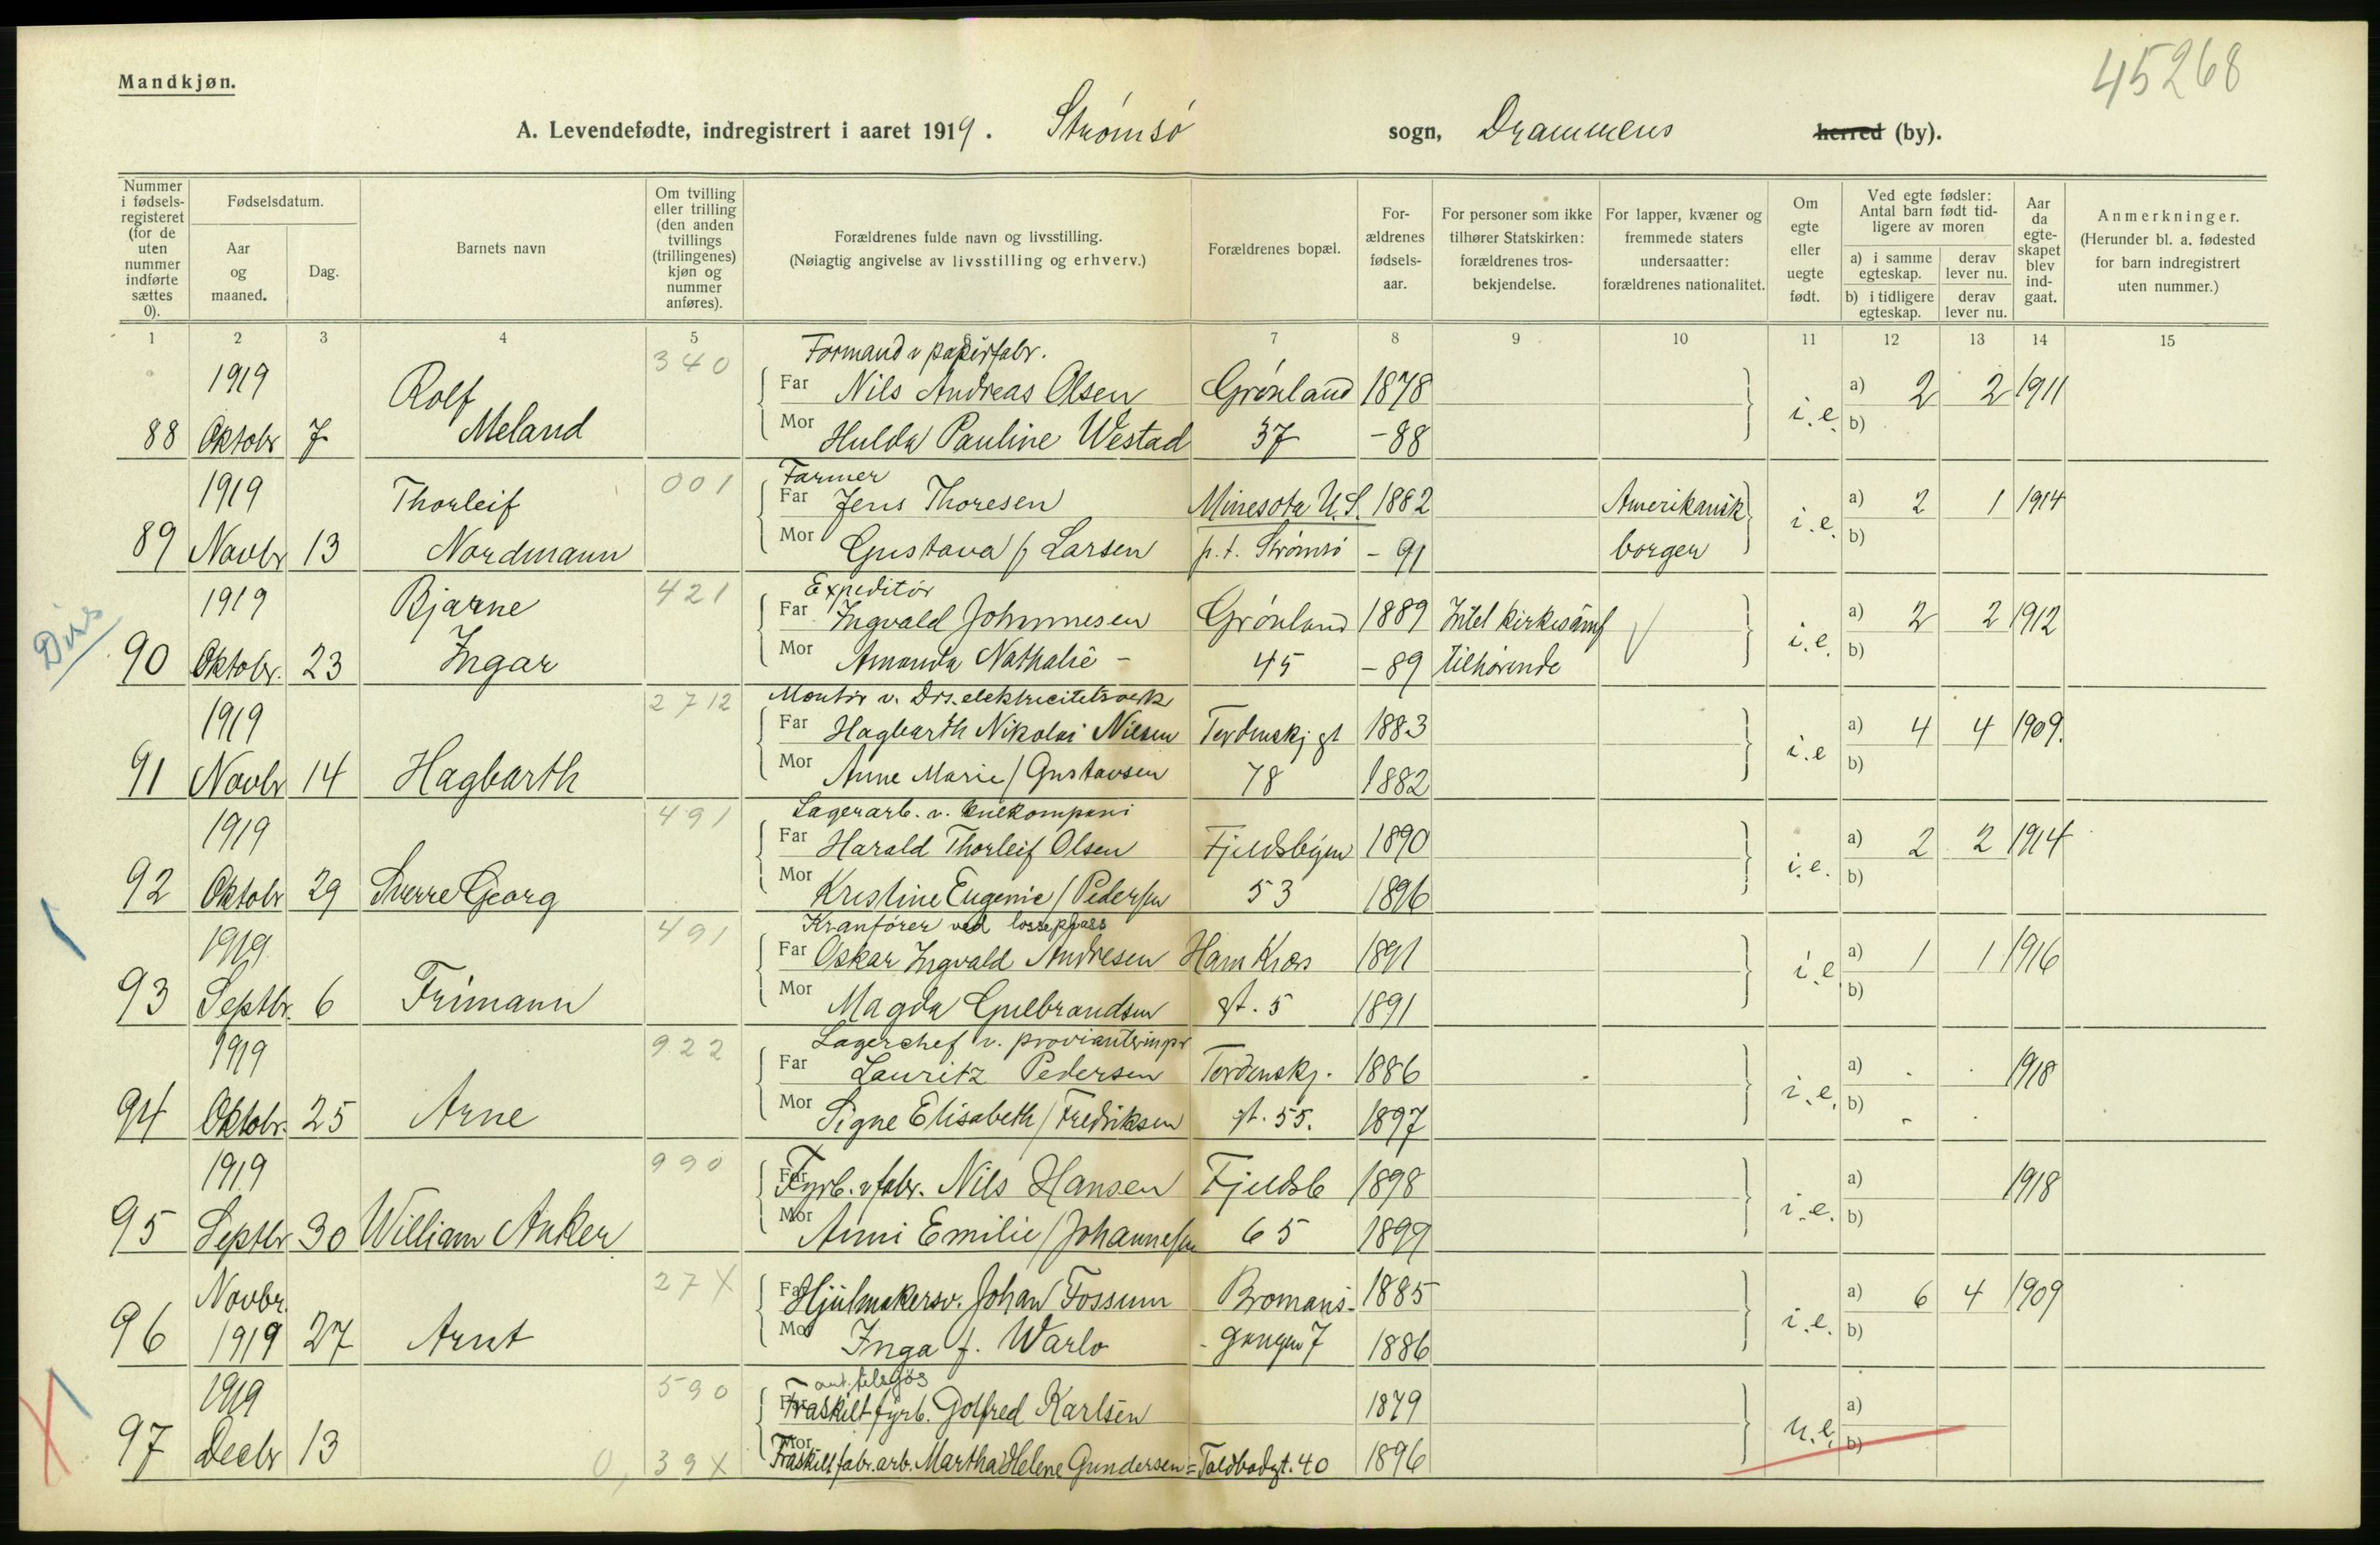 45268
Mandkjøn.
A. Levendefødte, indregistrert i aaret 1919. Strømsø sogn, Drammens herred (by).
Nummer i fødsels-registeret (for de uten nummer indførte sættes 0).
Fødselsdatum.
Aar og maaned.
Dag.
Barnets navn
Om tvilling eller trilling (den anden tvillings (trillingenes) kjøn og nummer anføres).
Forældrenes fulde navn og livsstilling.
(Nøiagtig angivelse av livsstilling og erhverv.)
Forældrenes bopæl.
For-ældrenes fødsels-aar.
For personer som ikke tilhører Statskirken: forældrenes tros-bekjendelse.
For lapper, kvæner og fremmede staters undersaatter: forældrenes nationalitet.
Om egte eller uegte født.
Ved egte fødsler: Antal barn født tid-ligere av moren
a) i samme egteskap. derav lever nu.
b) i tidligere egteskap. derav lever nu.
Aar da egte-skapet blev ind-gaat.
Anmerkninger.
(Herunder bl. a. fødested for barn indregistrert uten nummer.)
1 2 3 4 5 7 8 9 10 11 12 13 14 15
340 Formand v papirfabr.
1919 Rolf Far Nils Andreas Olsen Grønland 1878 a) 2 2 1911
88 Oktobr 7 Meland Mor Hulda Pauline Westad 37 -88 i.e. b)
001 Farmer
1919 Thorleif Far Jens Thoresen Minesota U.S. 1882 Amerikansk a) 2 1 1914
89 Novbr 13 Nordmann Mor Gustava f. Larsen p.t. Strømsø -91 borger i.e. b)
421 Expeditør
1919 Bjarne Far Ingvald Johannesen Grønland 1889 Intet kirkesamf a) 2 2 1912
Drs
90 Oktobr. 23 Ingar Mor Amanda Nathalie - 45 -89 tilhørende i.e. b)
2712 Montør v. Drs. elektricitetsverk
1919 Far Hagbarth Nikolai Nilsen Tordenskj gt 1883 a) 4 4 1909.
91 Novbr 14 Hagbarth Mor Anne Marie / Gustavsen 78 1882 i.e b)
491 Lagerarb. v. kulkompani
1919 Far Harald Thorleif Olsen Fjeldsbyen 1890 a) 2 2 1914
92 Oktobr 29 Sverre Georg Mor Kristine Eugenie / Pedersen 53 1896 i.e. b)
491 Kranfører ved losseplass
1919 Far Oskar Ingvald Andresen Ham Kræs 1891 a) 1 1 1916
93 Septbr. 6 Frimann Mor Magda Gulbrandsen gt. 5 1891 i.e b)
922 Lagerchef v. provianteringsr
1919 Far Lauritz Pedersen Tordenskj. 1886 a) 1918
94 Oktobr. 25 Arne Mor Signe Elisabeth / Fredriksen gt. 55. 1897 i.e. b)
990
1919 Far Fyrb. v fabr. Nils Hansen Fjeldsb 1898 a) 1918
95 Septbr 30 William Anker Mor Anni Emilie / Johannesen 65 1899 i.e. b)
27X
Novbr. Far Hjulmakersv. Johan Fossum Bromans- 1885 a) 6 4 1909
96 1919 27 Arnt Mor Inga f. Warlo - gangen 7 1886 i.e. b)
590
1919 Far Fraskilt fyrb. Golfred Karlsen 1879 a)
97 Decbr 13 0, 39X Mor Fraskilt fabr. arb. Martha Helene Gundersen = Toldbodgt. 40 1896 u.e. b)